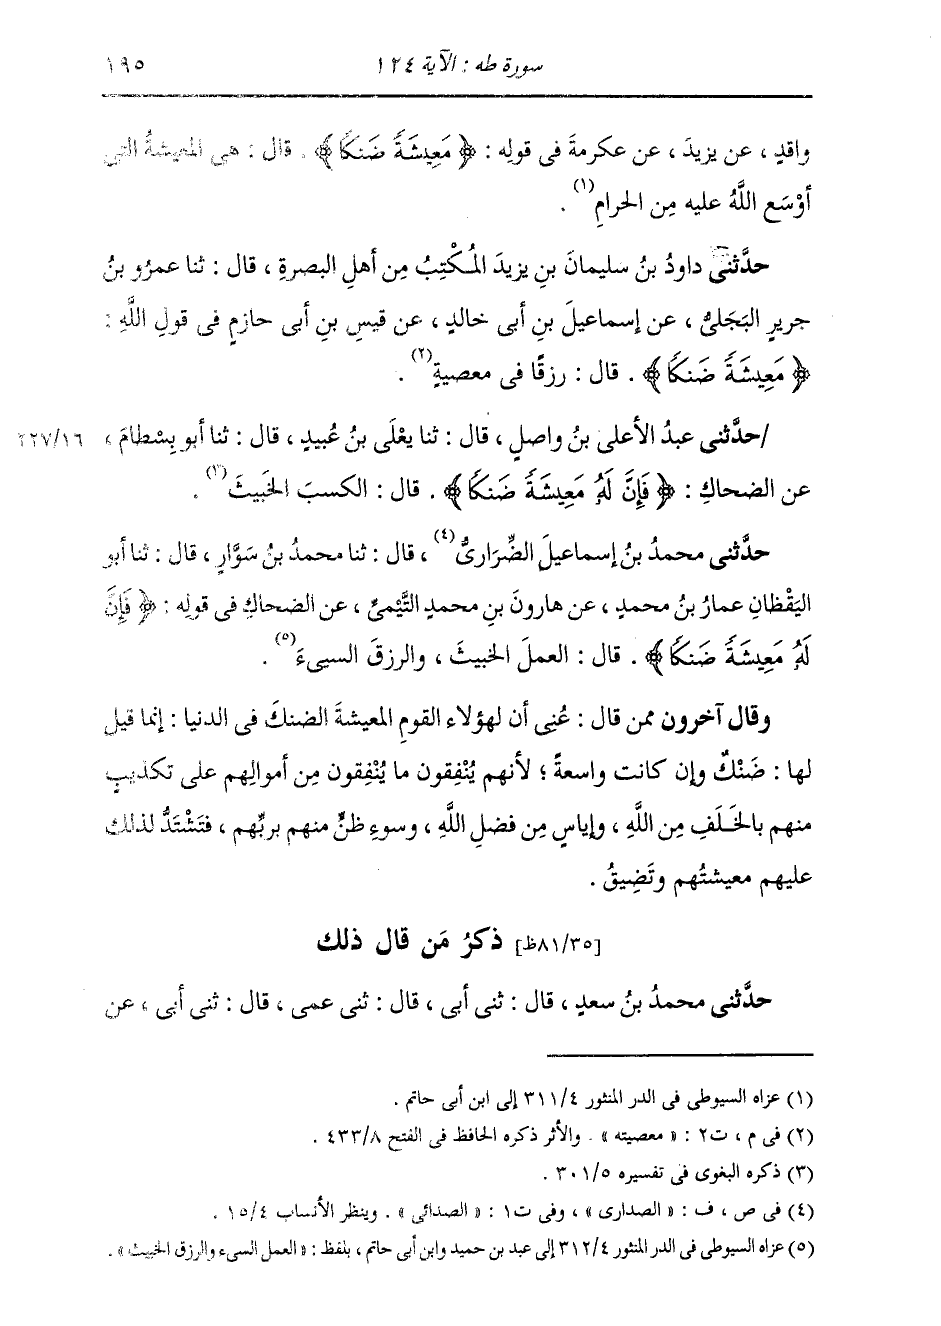 سورة طه : الآية ١٢٤
١٩٥
واقدٍ ، عن يزيدَ ، عن عكرمةَ فى قولِه : ﴿ مَعِيشَةً ضَنكًا ﴾ . قال : هى المعيشةُ التى
أوْسَع اللَّهُ عليه مِن الحرامِ(١) .
حدَّثنى داودُ بنُ سليمانَ بنِ يزيدَ المُكْتِبُ مِن أهلِ البصرةِ ، قال : ثنا عمرُو بنُ
جريرٍ البَجَلىُّ ، عن إسماعيلَ بنِ أبى خالدٍ ، عن قيسِ بنِ أبى حازمٍ فى قولِ اللَّهِ :
﴿ مَعِيشَةً ضَنكًا ﴾ . قال : رزقًا فى معصيةٍ(٢) .
/حدَّثنى عبدُ الأعلى بنُ واصلٍ ، قال : ثنا يعْلَى بنُ عُبيدٍ ، قال : ثنا أبو بِسْطامَ ، ٢٢٧/١٦
عن الضحاكِ : ﴿ فَإِنَّ لَهُ مَعِيشَةً ضَنكًا ﴾ . قال : الكسبَ الخبيثَ(٣) .
حدَّثنى محمدُ بنُ إسماعيلَ الضِّرَارىُّ(٤) ، قال : ثنا محمدُ بنُ سَوَّارٍ ، قال : ثنا أبو
اليَقْظانِ عمارُ بنُ محمدٍ ، عن هارونَ بنِ محمدٍ التَّيْمىِّ ، عن الضحاكِ فى قولِه : ﴿ فَإِنَّ
لَهُ مَعِيشَةً ضَنكًا ﴾ . قال : العملَ الخبيثَ ، والرزقَ السيىءَ(٥) .
وقال آخرون ممن قال : عُنِى أن لهؤلاء القومِ المعيشةَ الضنكَ فى الدنيا : إنما قيل
لها : ضَنْكٌ وإن كانت واسعةً ؛ لأنهم يُنْفِقون ما يُنْفِقون مِن أموالِهم على تكذيبٍ
منهم بالخَلَفِ مِن اللَّهِ ، وإياسٍ مِن فضلِ اللَّهِ ، وسوءِ ظنٍّ منهم بربِّهم ، فتَشْتَدُّ لذلك
عليهم معيشتُهم وتَضِيقُ .
[٨١/٣٥ظ] ذكرُ مَن قال ذلك
حدَّثنى محمدُ بنُ سعدٍ ، قال : ثنى أبى ، قال : ثنى عمى ، قال : ثنى أبى ، عن
(١) عزاه السيوطى فى الدر المنثور ٣١١/٤ إلى ابن أبى حاتم .
(٢) فى م ، ت٢ : « معصيته » . والأثر ذكره الحافظ فى الفتح ٤٣٣/٨ .
(٣) ذكره البغوى فى تفسيره ٣٠١/٥ .
(٤) فى ص ، ف : « الصدارى » ، وفى ت١ : « الصدائى » . وينظر الأنساب ١٥/٤ .
(٥) عزاه السيوطى فى الدر المنثور ٣١٢/٤ إلى عبد بن حميد وابن أبى حاتم ، بلفظ : « العمل السيىء والرزق الخبيث » .